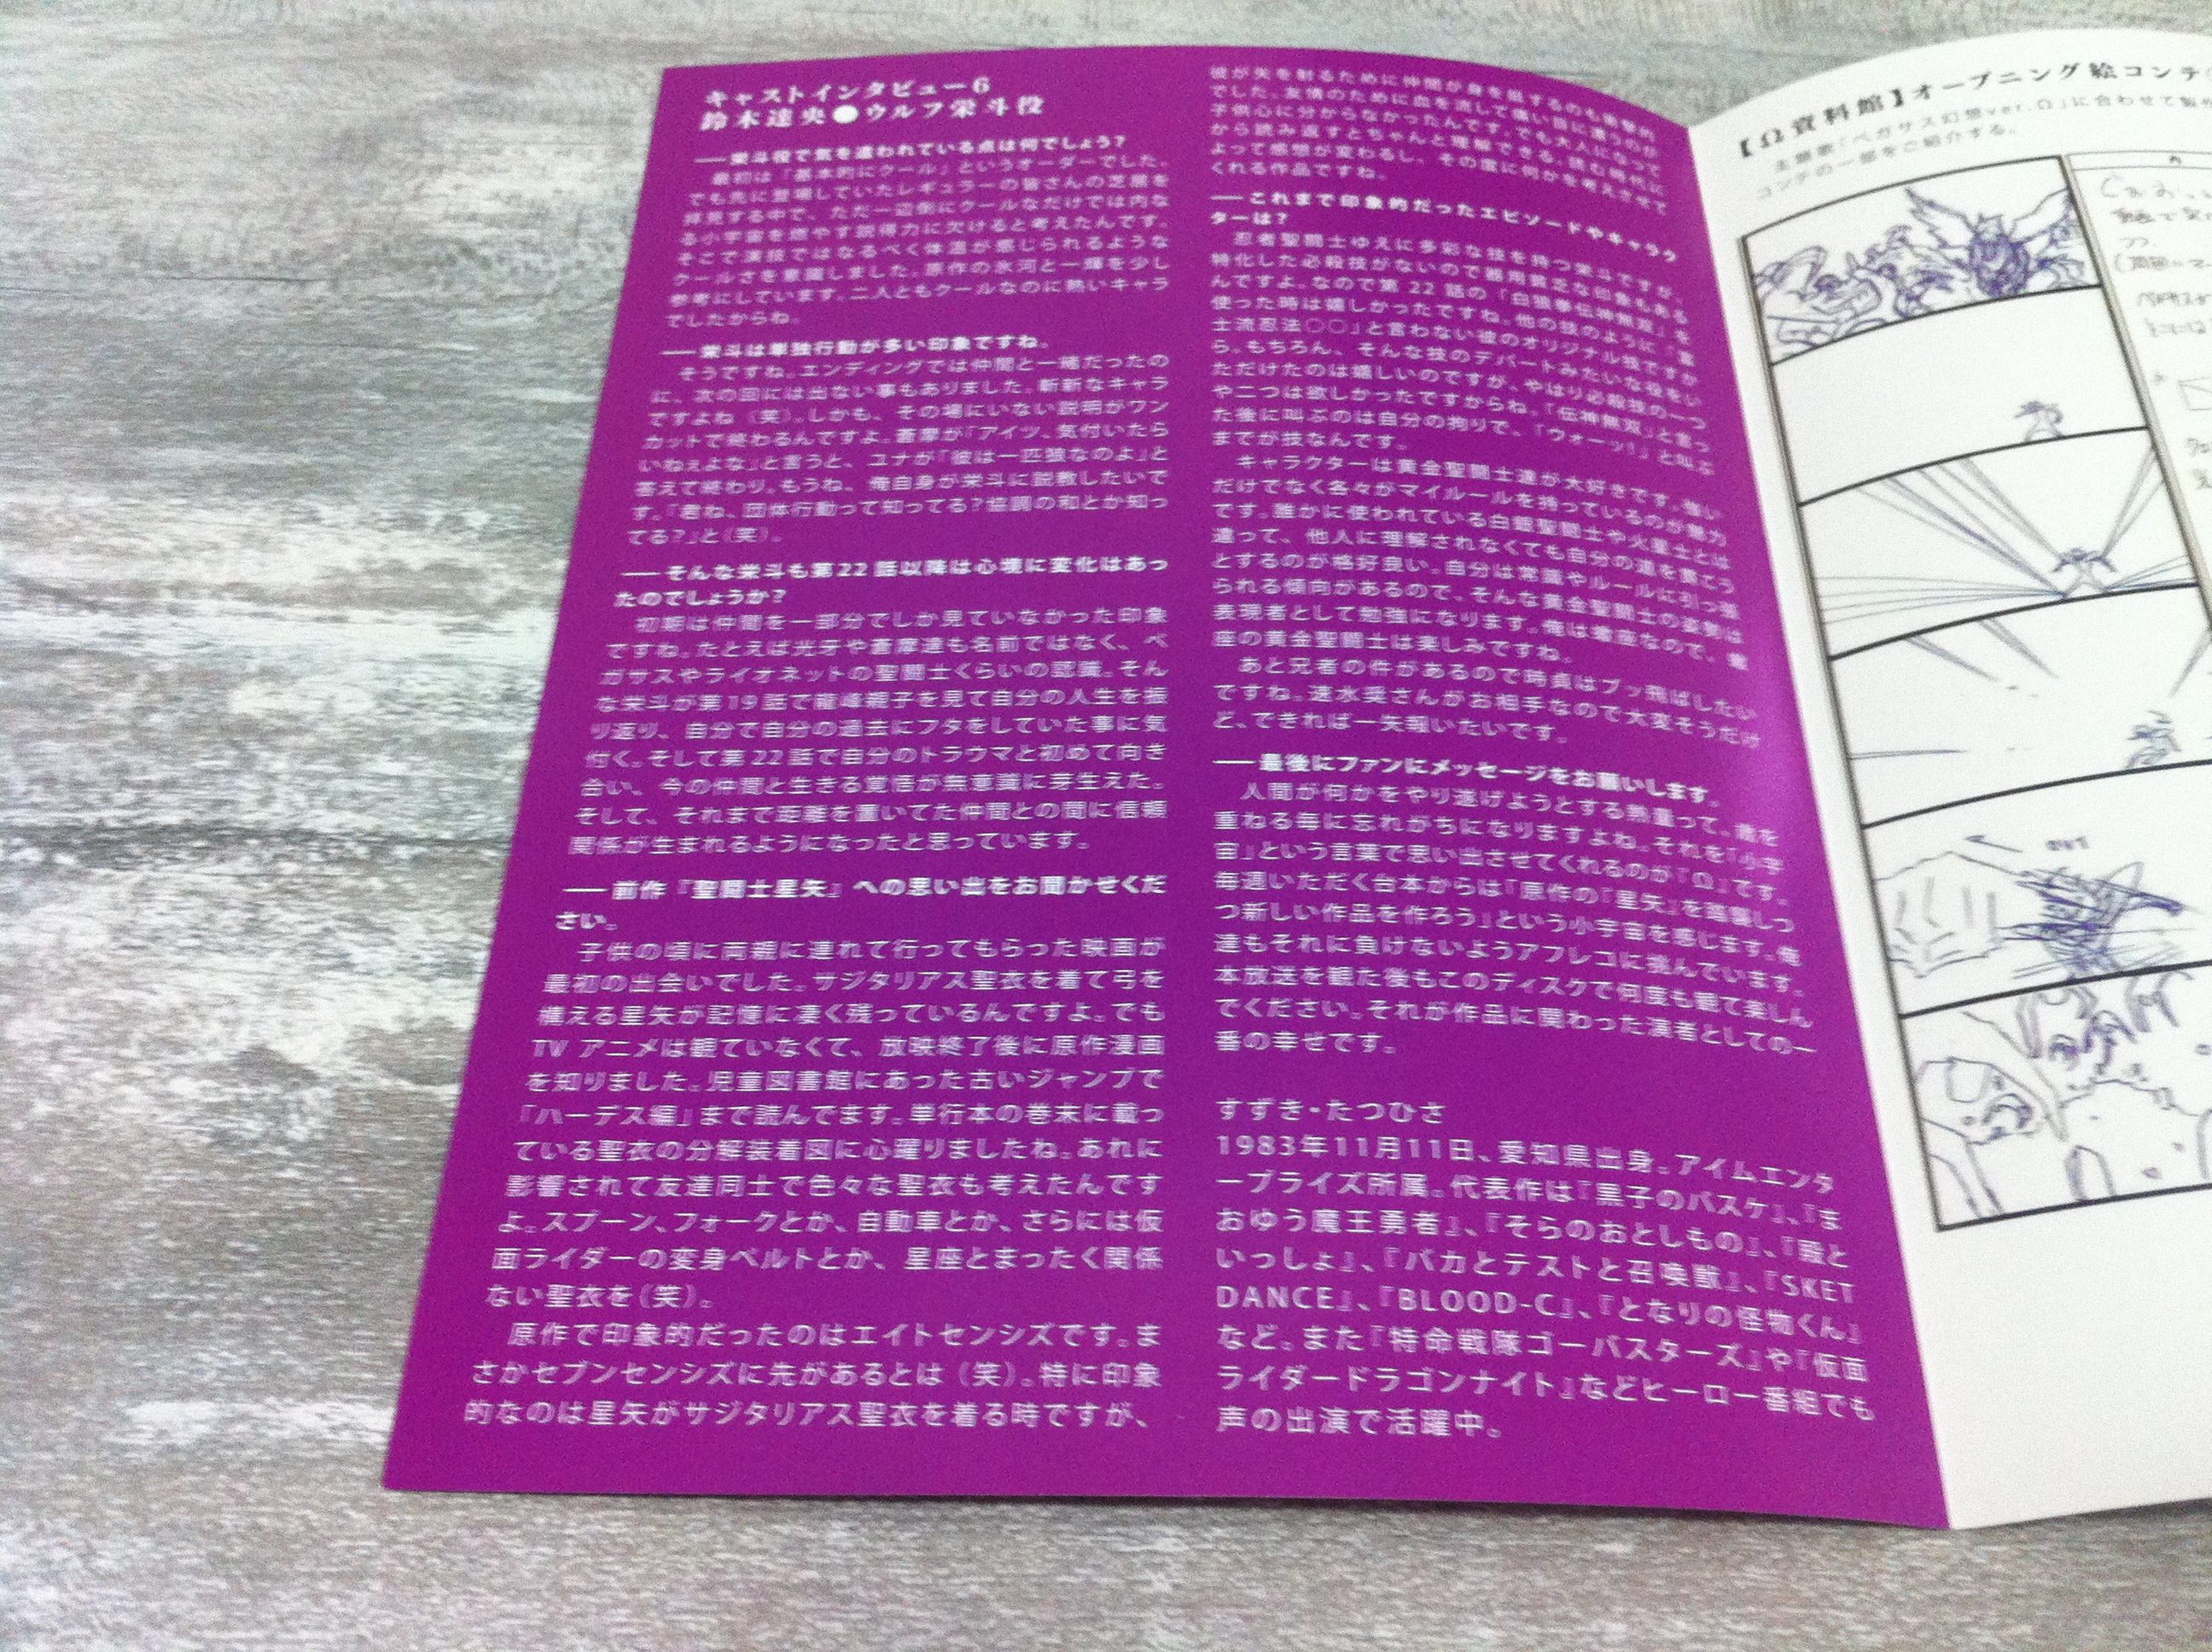 キャストインタビュー6
鈴木達央●ウルフ栄斗役
――栄斗役で気を遣われている点は何でしょう?
最初は「基本的にクール」というオーダーでした。
でも先に登場していたレギュラーの皆さんの芝居を
拝見する中で、ただ一辺倒にクールなだけでは内な
る小宇宙を燃やす説得力に欠けると考えたんです。
そこで演技ではなるべく体温が感じられるような
クールさを意識しました。原作の氷河と一輝を少し
参考にしています。二人ともクールなのに熱いキャラ
でしたからね。
――栄斗は単独行動が多い印象ですね。
そうですね。エンディングでは仲間と一緒だったの
に、次の回には出ない事もありました。斬新なキャラ
ですよね(笑)。しかも、その場にいない説明がワン
カットで終わるんですよ。蒼摩が「アイツ、気付いたら
いねえよな」と言うと、ユナが「彼は一匹狼なのよ」と
答えて終わり。もうね、俺自身が栄斗に説教したいで
す。「君ね、団体行動って知ってる?協調の和とか知っ
てる?」と(笑)。
――そんな栄斗も第22話以降は心境に変化はあっ
たのでしょうか?
初期は仲間を一部分でしか見ていなかった印象
ですね。たとえば光牙や蒼摩達も名前ではなく、ペ
ガサスやライオネットの聖闘士くらいの認識。そん
な栄斗が第19話で龍峰親子を見て自分の人生を振
り返り、自分で自分の過去にフタをしていた事に気
付く。そして第22話で自分のトラウマと初めて向き
合い、今の仲間と生きる覚悟が無意識に芽生えた。
そして、それまで距離を置いてた仲間との間に信頼
関係が生まれるようになったと思っています。
――前作『聖闘士星矢』への思い出をお聞かせくだ
さい。
子供の頃に両親に連れて行ってもらった映画が
最初の出会いでした。サジタリアス聖衣を着て弓を
構える星矢が記憶に凄く残っているんですよ。でも
TVアニメは観ていなくて、放映終了後に原作漫画
を知りました。児童図書館にあった古いジャンプで
「ハーデス編」まで読んでます。単行本の巻末に載っ
ている聖衣の分解装着図に心躍りましたね。あれに
影響されて友達同士で色々な聖衣も考えたんです
よ。スプーン、フォークとか、自動車とか、さらには仮
面ライダーの変身ベルトとか、星座とまったく関係
ない聖衣を(笑)。
原作で印象的だったのはエイトセンシズです。ま
さかセブンセンシズに先があるとは(笑)。特に印象
的なのは星矢がサジタリアス聖衣を着る時ですが、
彼が矢を射るために仲間が身を挺するのも衝撃的
でした。友情のために血を流して痛い目に遭うのが
子供心に分からなかったんです。でも大人になって
から読み返すとちゃんと理解できる。読む時代に
よって感想が変わるし、その度に何かを考えさせて
くれる作品ですね。
――これまで印象的だったエピソードやキャラク
ターは?
忍者聖闘士ゆえに多彩な技を持つ栄斗ですが、
特化した必殺技がないので器用貧乏な印象もある
んですよ。なので第22話の「白狼拳伝神無双」を
使った時は嬉しかったですね。他の技のように「富
士流忍法○○」と言わない彼のオリジナル技ですか
ら。もちろん、そんな技のデパートみたいな役をい
ただけたのは嬉しいのですが、やはり必殺技の一つ
や二つは欲しかったですからね。「伝神無双」と言っ
た後に叫ぶのは自分の拘りで、「ウォーッ!」と叫ぶ
までが技なんです。
キャラクターは黄金聖闘士達が大好きです。強い
だけでなく各々がマイルールを持っているのが魅力
です。誰かに使われている白銀聖闘士や火星士とは
違って、他人に理解されなくても自分の道を貫こう
とするのが格好良い。自分は常識やルールに引っ張
られる傾向があるので、そんな黄金聖闘士の姿勢は
表現者として勉強になります。俺は蠍座なので、蠍
座の黄金聖闘士は楽しみですね。
あと兄者の件があるので時貞はブッ飛ばしたい
ですね。速水奨さんがお相手なので大変そうだけ
ど、できれば一矢報いたいです。
――最後にファンにメッセージをお願いします。
人間が何かをやり遂げようとする熱量って、歳を
重ねる毎に忘れがちになりますよね。それを「小宇
宙」という言葉で思い出させてくれるのが『Ω』です。
毎週いただく台本からは「原作の『星矢』を踏襲しつ
つ新しい作品を作ろう」という小宇宙を感じます。俺
達もそれに負けないようアフレコに挑んでいます。
本放送を観た後もこのディスクで何度も観て楽しん
でください。それが作品に関わった演者としての一
番の幸せです。
すずき・たつひさ
1983年11月11日、愛知県出身。アイムエンタ
ープライズ所属。代表作は『黒子のバスケ』、『ま
おゆう魔王勇者』、『そらのおとしもの』、『殿と
いっしょ』、『バカとテストと召喚獣』、『SKET
DANCE』、『BLOOD-C』、『となりの怪物くん』
など。また『特命戦隊ゴーバスターズ』や『仮面
ライダードラゴンナイト』などヒーロー番組でも
声の出演で活躍中。
【Ω資料館】オープニング絵コンテ
主題歌「ペガサス幻想ver.Ω」に合わせて製作
コンテの一部をご紹介する。
OUT